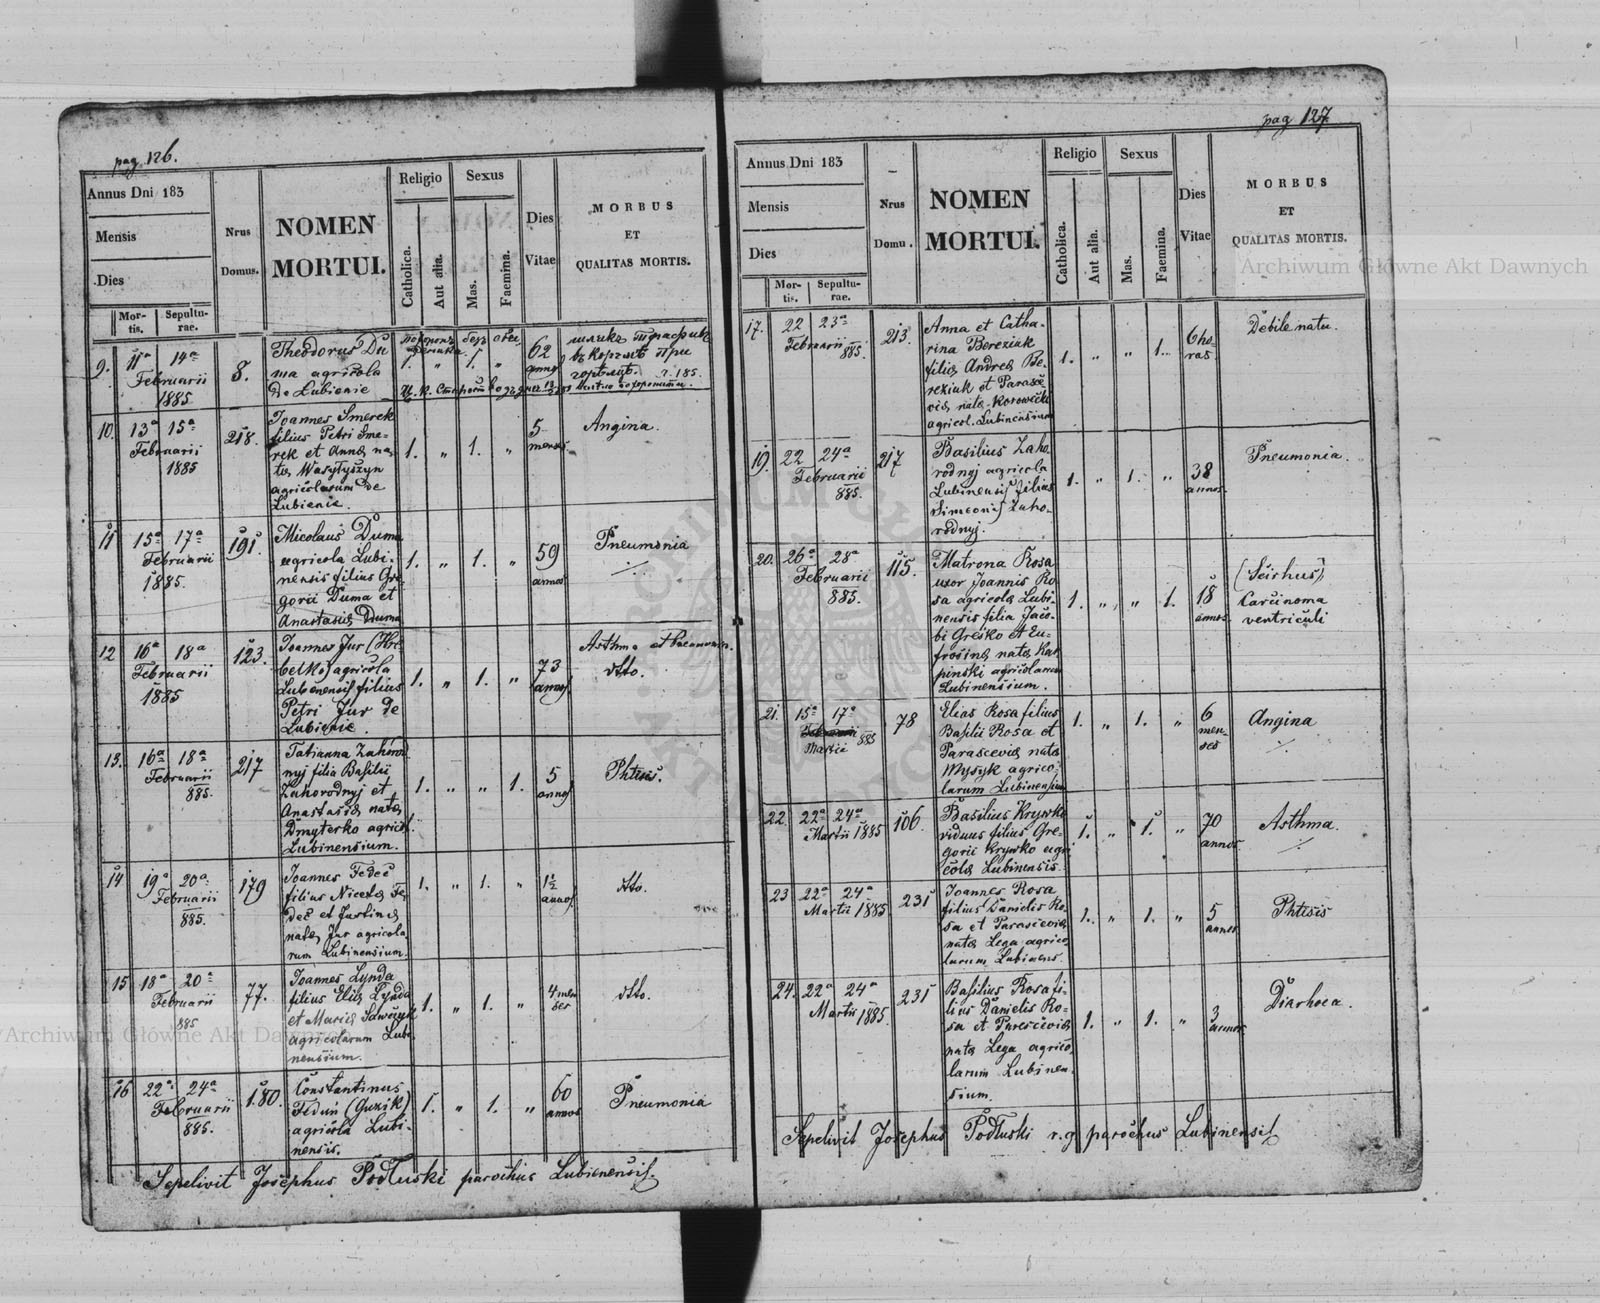 pag 126.
Annus Dni 183
Mensis
Dies
Mortis.
Sepulturae.
Nrus
Domus.
NOMEN
MORTUI.
Religio
Catholica.
Aut alia.
Sexus
Mas.
Faemina.
Dies
Vitae
MORBUS
ET
QUALITAS MORTIS.
9. 11a 14a
Februarii
1885.
8.
Theodorus Du
ma agricola
de Lubienie
1. „ 1. „
62
annos
10. 13a 15a
Februarii
1885
218.
Joannes Smerek
filius Petri Sme=
rek et Annæ na
tæ Wasylyszyn
agricolarum de
Lubienie.
1. „ 1. „
5
menses
Angina.
11 15a 17a
Februarii
1885.
191
Micolaus Duma
agricola Lubi=
nensis filius Gre
gorii Duma et
Anastasiæ Duma
1. „ 1. „
59
annos
Pneumonia
12 16a 18a
Februarii
1885
123.
Joannes Jur (Hre
belko) agricola
Lubenensis filius
Petri Jur de
Lubienie.
1. „ 1. „
73
annos
Asthma et Pneumonia.
dtto.
13. 16a 18a
Februarii
885.
217
Tatianna Zahorod
nyj filia Basilii
Zahorodnyj et
Anastasiæ natæ
Dmyterko agricol.
Lubinensium.
1. „ „ 1.
5
annos
Phtisis.
14 19a 20a
Februarii
885.
179
Joannes Fedec
filius Nicetæ Fe
dec et Justinæ
natæ Jur agricola
rum Lubinensium.
1. „ 1. „
1½
annos
dtto.
15 18a 20a
Februarii
885
77.
Joannes Lynda
filius Eliæ Lynda
et Mariæ Sawczyk
agricolarum Lubi
nensium.
1. „ 1. „
4 men
ses
dtto.
16 22a 24a
Februarii
885.
180.
Constantinus
Fedun (Guzik)
agricola Lubi=
nensis.
1. „ 1. „
60
annos
Pneumonia
Sepelivit Josephus Podłuski parochus Lubienensis
pag 127
Annus Dni 183
Mensis
Dies
Mortis.
Sepulturae.
Nrus
Domu .
NOMEN
MORTUI.
Religio
Catholica.
Aut alia.
Sexus
Mas.
Faemina.
Dies
Vitae
MORBUS
ET
QUALITAS MORTIS.
17. 22 23a
Februarii
885.
213.
Anna et Catha=
rina Bereziak
filiæ Andreæ Be=
reziak et Parasce
viæ natæ
agricol. Lubinensium
1. „ „ 1.
6 ho=
ras
Debile natu.
19. 22 24a
Februarii
885.
217
Basilius Zaho
rodnyj agricola
Lubinensis filius
Simeonis Zaho=
rodnyj.
1. „ 1. „
38
annos.
Pneumonia.
20. 26a 28a
Februarii
885.
115.
Matrona Rosa
uxor Joannis Ro
sa agricolæ Lubi=
nensis filia Jaco=
bi Gresko et Eu=
frosinæ natæ Kar
pinski agricolarum
Lubinensium.
1. „ „ 1.
18
annos.
(Scirhus)
Carcinoma
ventriculi
21. 15a 17a
Februarii
Martii 885
78
Elias Rosa filius
Basilii Rosa et
Parasceviæ natæ
Mysyk agrico=
larum Lubinensium
1. „ 1. „
6
men=
ses
Angina
22. 22a 24a
Martii 1885
106.
Basilius Krywko
viduus filius Gre=
gorii Krywko agri
colæ Lubinensis.
1. „ 1. „
70
annos
Asthma.
23 22a 24a
Martii 1885
231
Joannes Rosa
filius Danielis Ro=
sa et Parasceviæ
natæ Lega agrico
larum Lubinens.
1. „ 1. „
5
annos
Phtisis
24. 22a 24a
Martii 1885.
231
Basilius Rosa fi=
lius Danielis Ro=
sa et Parasceviæ
natæ Lega agrico
larum Lubinen
sium.
1. „ 1. „
3
annos
Diarhoea.
Sepelivit Josephus Podłuski r.g. parochus Lubinensis
Archiwum Główne Akt Dawnych
Archiwum Główne Akt Dawnych